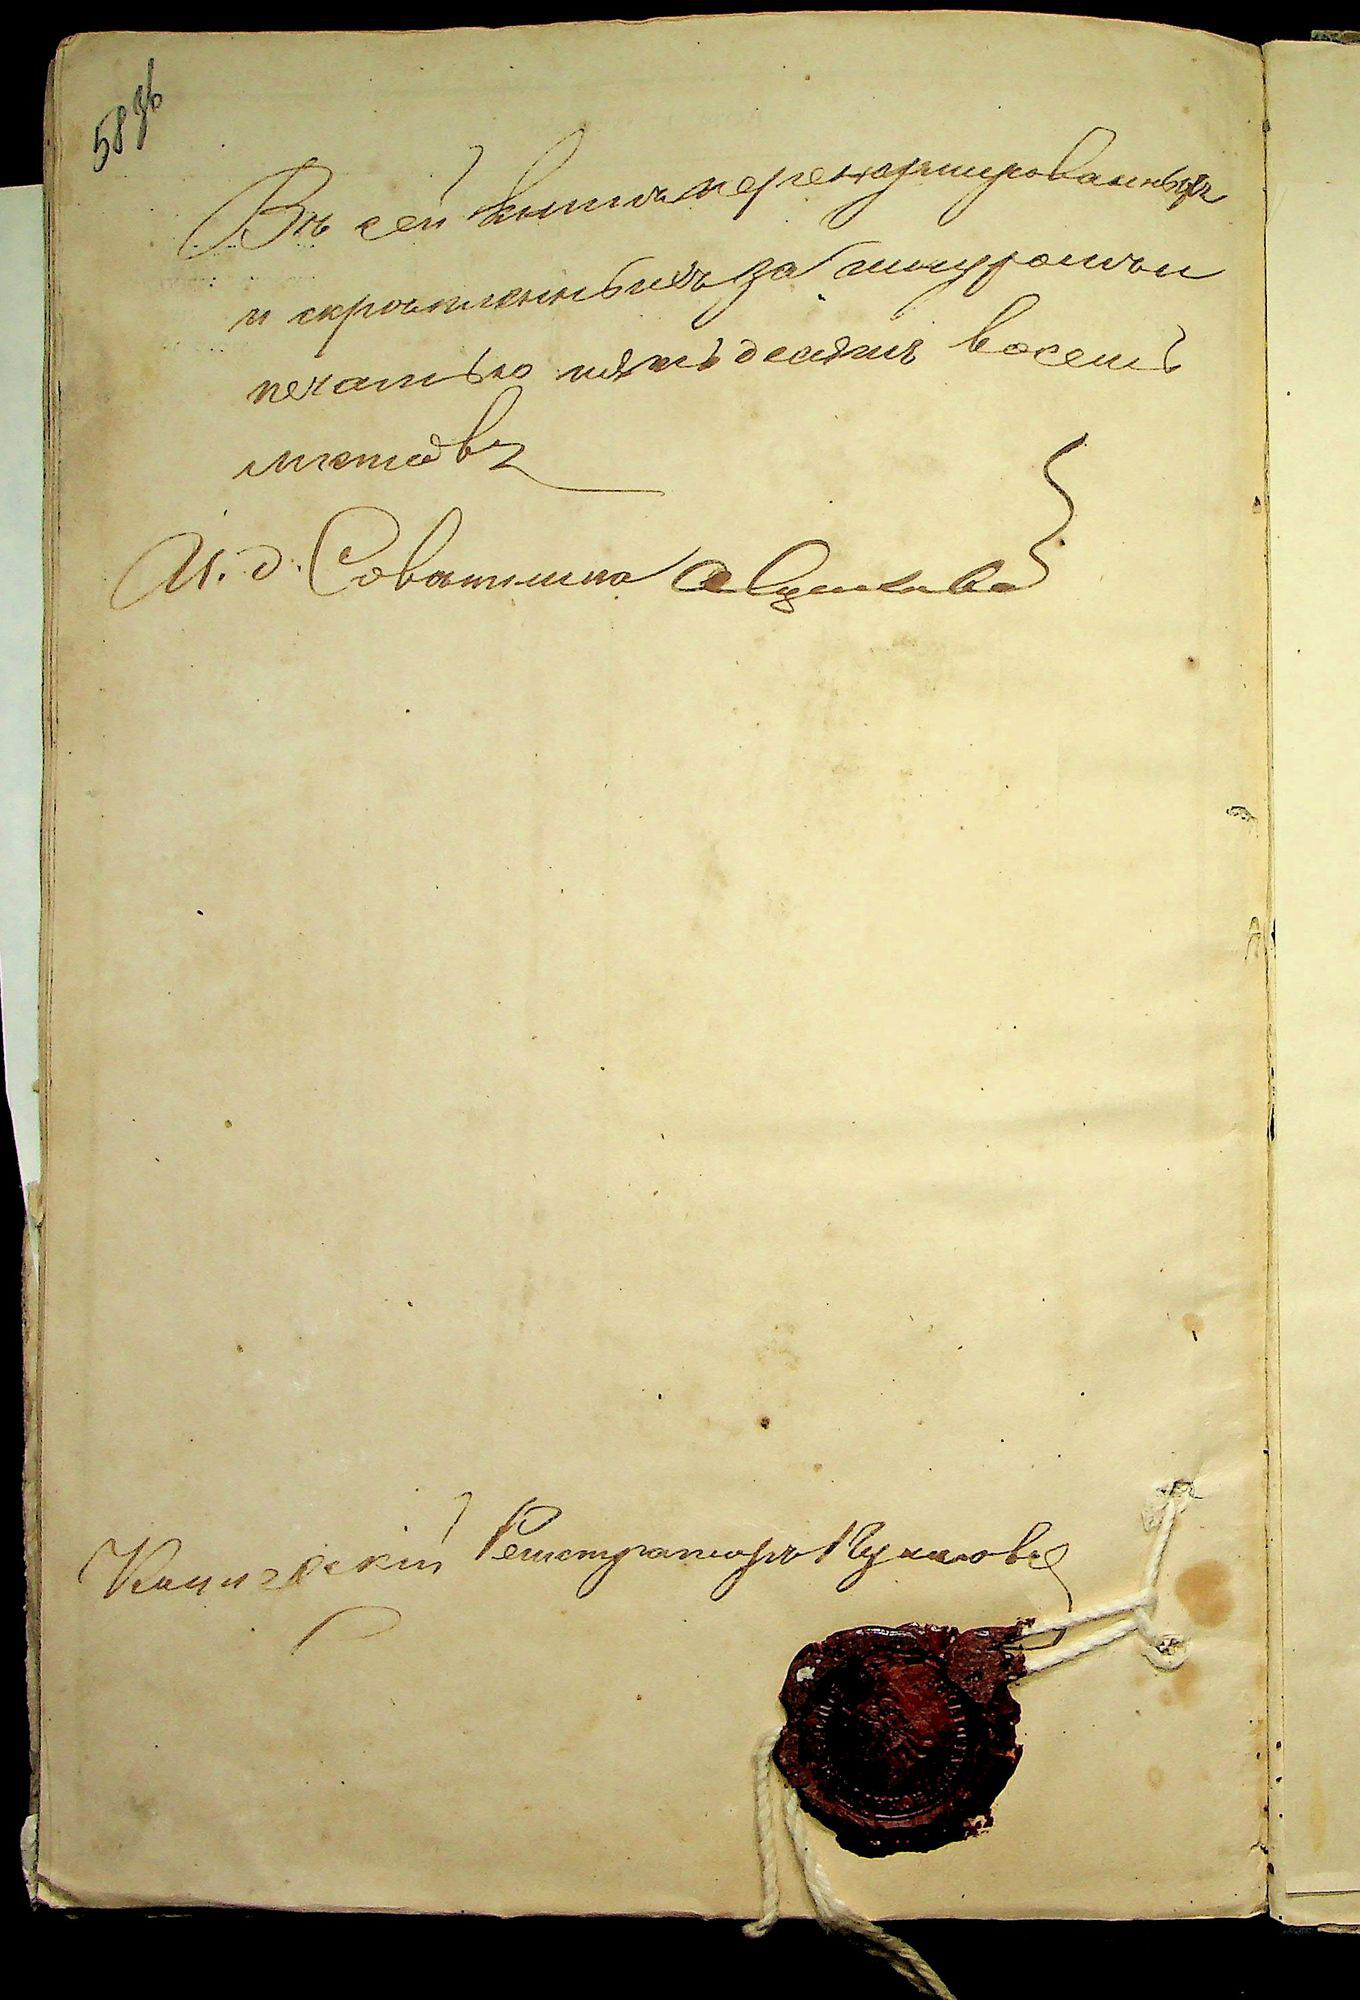 58 об
Въ сей книгѣ перенумерованныхъ
и скрѣпленныхъ за шнуромъ и
печатью пятьдесятъ восемь
листовъ
И. д. Совѣтника
Канцелярскій Регистраторъ